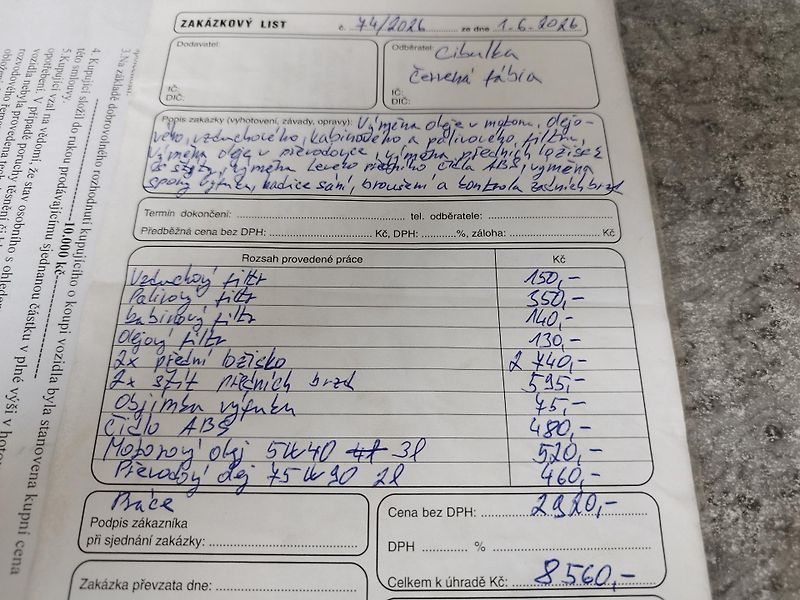 ZAKÁZKOVÝ LIST č. 74/2026 ze dne 1.6.2026
Dodavatel:
IČ:
DIČ:
Odběratel: Cibulka
Červená fábia
IČ:
DIČ:
Popis zakázky (vyhotovení, závady, opravy): Výměna oleje v motoru, olejo-
vého, vzduchového, kabinového a palivového filtru,
Výměna oleje v převodovce, výměna předních ložisek
výměna levého předního čidla ABS, výměna
spony výfuku, hadice sání, broušení a kontrola zadních brzd
Termín dokončení: tel. odběratele:
Předběžná cena bez DPH: Kč, DPH: %, záloha: Kč
Rozsah provedené práce Kč
Vzduchový filtr 150,-
Palivový filtr 350,-
kabinový filtr 140,-
Olejový filtr 130,-
2x přední ložisko 2 740,-
2x štít předních brzd 595,-
Objímka výfuku 75,-
Čidlo ABS 480,-
Motorový olej 5W40 3l 520,-
Převodový olej 75W90 2l 460,-
Práce
Podpis zákazníka
při sjednání zakázky:
Cena bez DPH: 2920,-
DPH %
Celkem k úhradě Kč: 8560,-
Zakázka převzata dne:
3. Na základě dobrovolného rozhodnutí kupujícího o koupi vozidla byla stanovena kupní cena
10.000 kč
4. Kupující složil do rukou prodávajícímu sjednanou částku v plné výši v hotov
této smlouvy.
5. Kupující vzal na vědomí, že stav osobního s ohledem
opotřebení. V případě poruchy těsnění
vozidla nebyla provedena